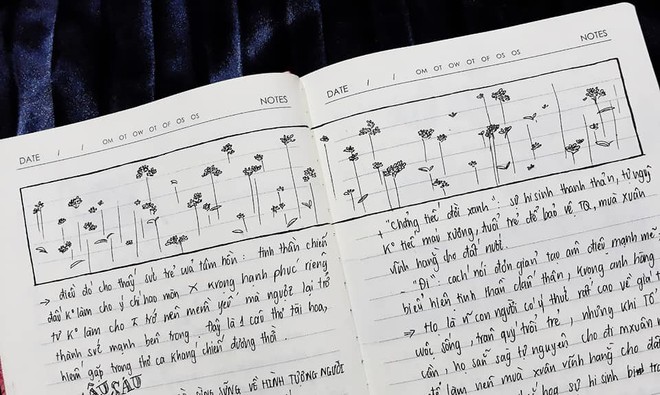 DATE / / OM OT OW OT OF OS OS NOTES
→ điều đó cho thấy sức trẻ của tâm hồn: tinh thần chiến
đấu K° làm cho ý chí hao mòn X không hạnh phúc riêng
tư K° làm cho trở nên mềm yếu mà ngược lại trở
thành sức mạnh bên trong. Đây là 1 cao thơ tài hoa,
hiếm gặp trong thơ ca kháng chiến đương thời.
CÂU SAU
SỪNG SỮNG VỀ HÌNH TƯỢNG NGƯỜI
DATE / / OM OT OW OT OF OS OS NOTES
+ "Chẳng tiếc đời xanh": sự hi sinh thanh thản, tự nguyện
K° tiếc máu xương, tuổi trẻ để bảo vệ TQ, mùa xuân
vĩnh hằng cho đất nước.
"Đi": cách nói đơn giản tạo âm điệu mạnh mẽ
biểu hiện tinh thần dấn thân, không anh hùng
⇒ Họ là ~ con người có ý thức rất cao về giá
cuộc sống, trân quý tuổi trẻ, nhưng khi Tổ
cần, họ sẵn sàg tự nguyện cho đi mxuân
để làm nên mùa xuân vĩnh hằng cho đất
sự hi sinh